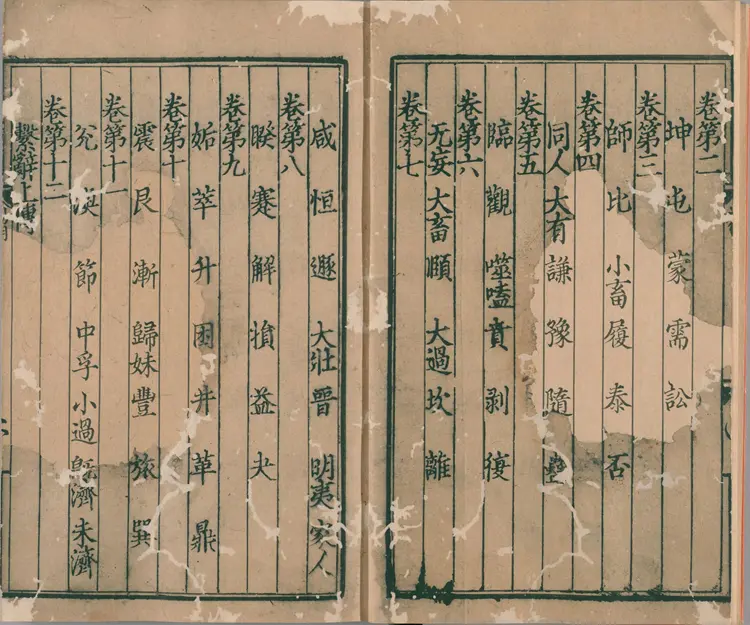 卷第二
坤 屯 蒙 需 訟
卷第三
師 比 小畜 履 泰 否
卷第四
同人 大有 謙 豫 隨 蠱
卷第五
臨 觀 噬嗑 賁 剥 復
卷第六
无妄 大畜 頤 大過 坎 離
卷第七
咸 恒 遯 大壯 晉 明夷 家人
卷第八
睽 蹇 解 損 益 夬
卷第九
姤 萃 升 困 井 革 鼎
卷第十
震 艮 漸 歸妹 豐 旅 巽
卷第十一
兊 渙 節 中孚 小過 旣濟 未濟
卷第十二
繫辭上傳